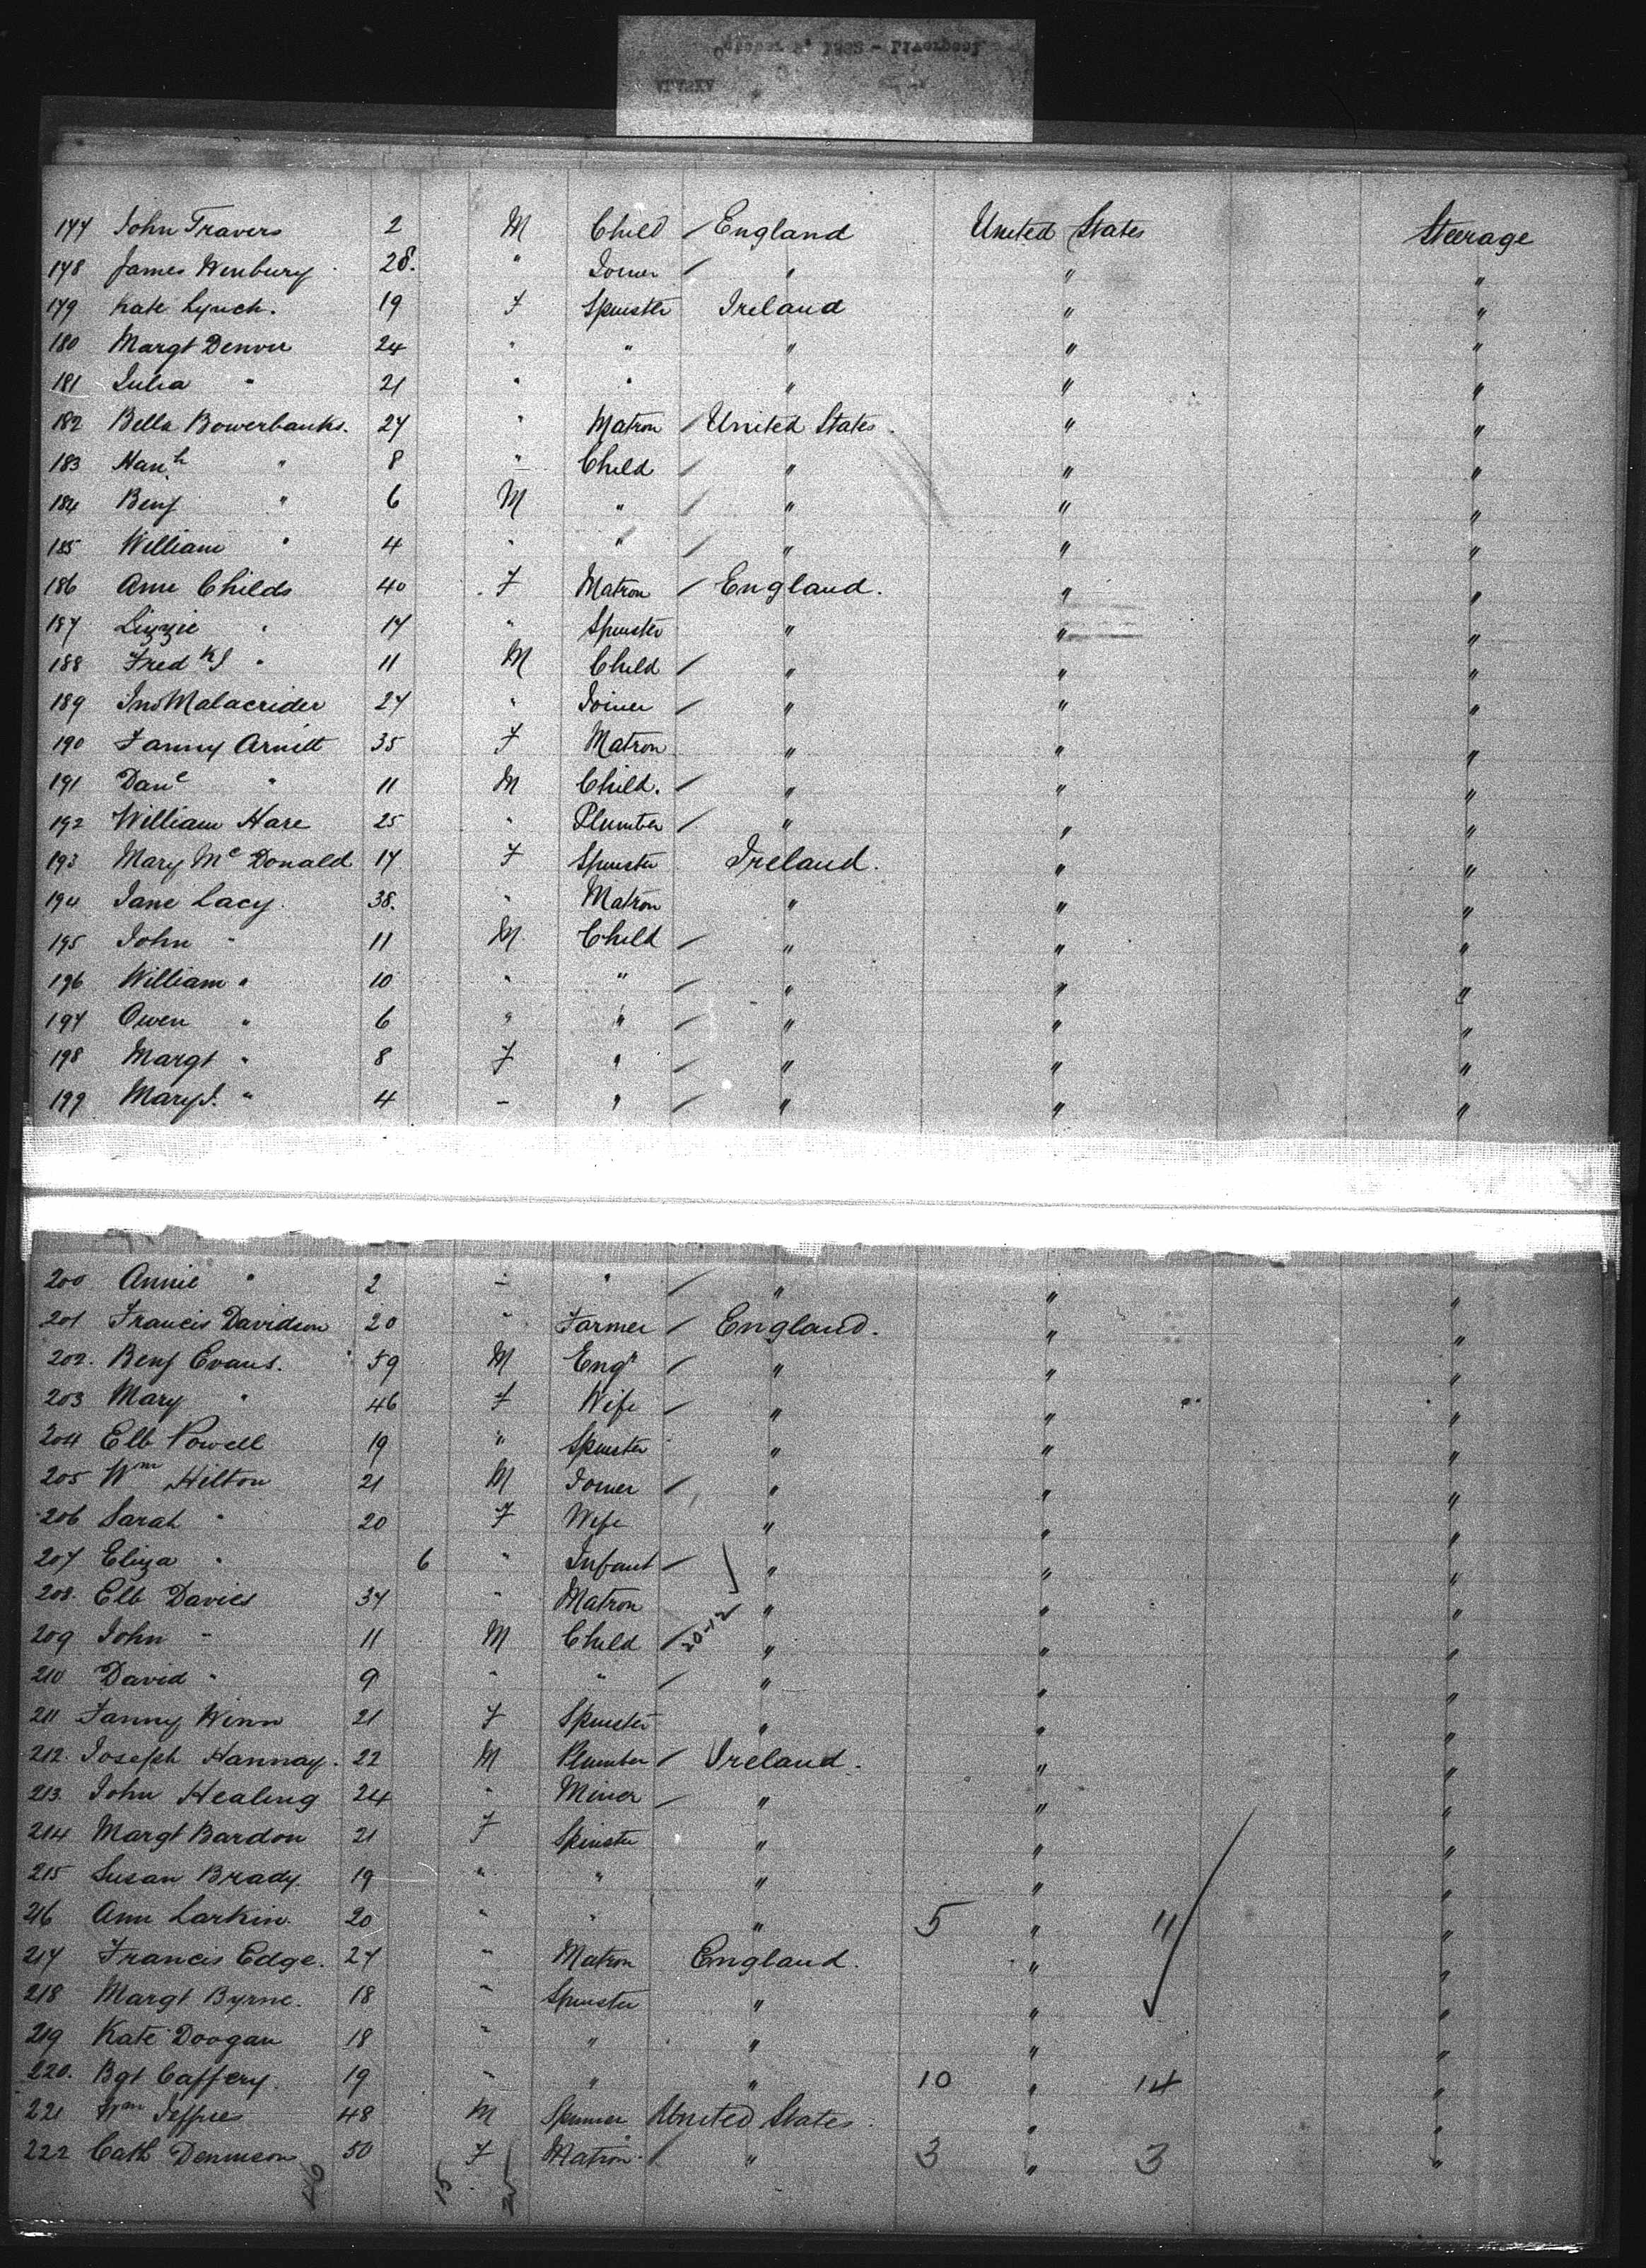 177 John Travers 2 M Child / England United States Steerage
178 James Wenbury 28. " Joiner / " " "
179 Kate Lynch. 19 F Spinster Ireland " "
180 Margt Denver 24 " " " " "
181 Julia " 21 " " " " "
182 Bella Bowerbanks. 27 " Matron / United States. " "
183 Hanh " 8 " Child / " " "
184 Benj " 6 M " / " " "
185 William " 4 " " / " " "
186 Ann Childs 40 F Matron / England. " "
187 Lizzie " 17 " Spinster " " "
188 Fredk " 11 M Child / " " "
189 Jno Malacrider 27 " Joiner / " " "
190 Fanny Arnitt 35 F Matron " " "
191 Danl " 11 M Child. / " " "
192 William Hare 25 " Plumber / " " "
193 Mary Mc Donald 17 F Spinster Ireland. " "
194 Jane Lacy. 38. " Matron " " "
195 John " 11 M. Child / " " "
196 William " 10 " " / " " "
197 Owen " 6 " " / " " "
198 Margt " 8 F " / " " "
199 Mary J. " 4 - " / " " "
200 Annie " 2 - " / " " "
201 Francis Davidson 20 " Farmer / England. " "
202. Benj Evans. 59 M Engr / " " "
203 Mary " 46 F Wife / " " "
204 Elb Powell 19 " Spinster " " "
205 Wm Hilton 21 M Joiner / " " "
206 Sarah " 20 F Wife " " "
207 Eliza " 6 " Infant / " " "
208. Elb Davies 37 " Matron " " "
209 John " 11 M Child / 20-12 " " "
210 David " 9 " " / " " "
211 Fanny Winn 21 F Spinster " " "
212. Joseph Hannay. 22 M Plumber / Ireland. " "
213. John Healing 24 " Miner / " " "
214 Margt Bardon 21 F Spinster " " "
215 Susan Brady. 19 " " " " "
216 Ann Larkin. 20 " " " 5 " 11 "
217 Francis Edge. 27 " Matron England. " "
218 Margt Byrne. 18 " Spinster " " "
219 Kate Doogan 18 " " " " "
220. Bgt Caffery. 19 " " " 10 " 14 "
221 Wm Jeffries 48 M Spinner United States. " "
222 Cath Dennison 50 F Matron / " 3 " 3 "